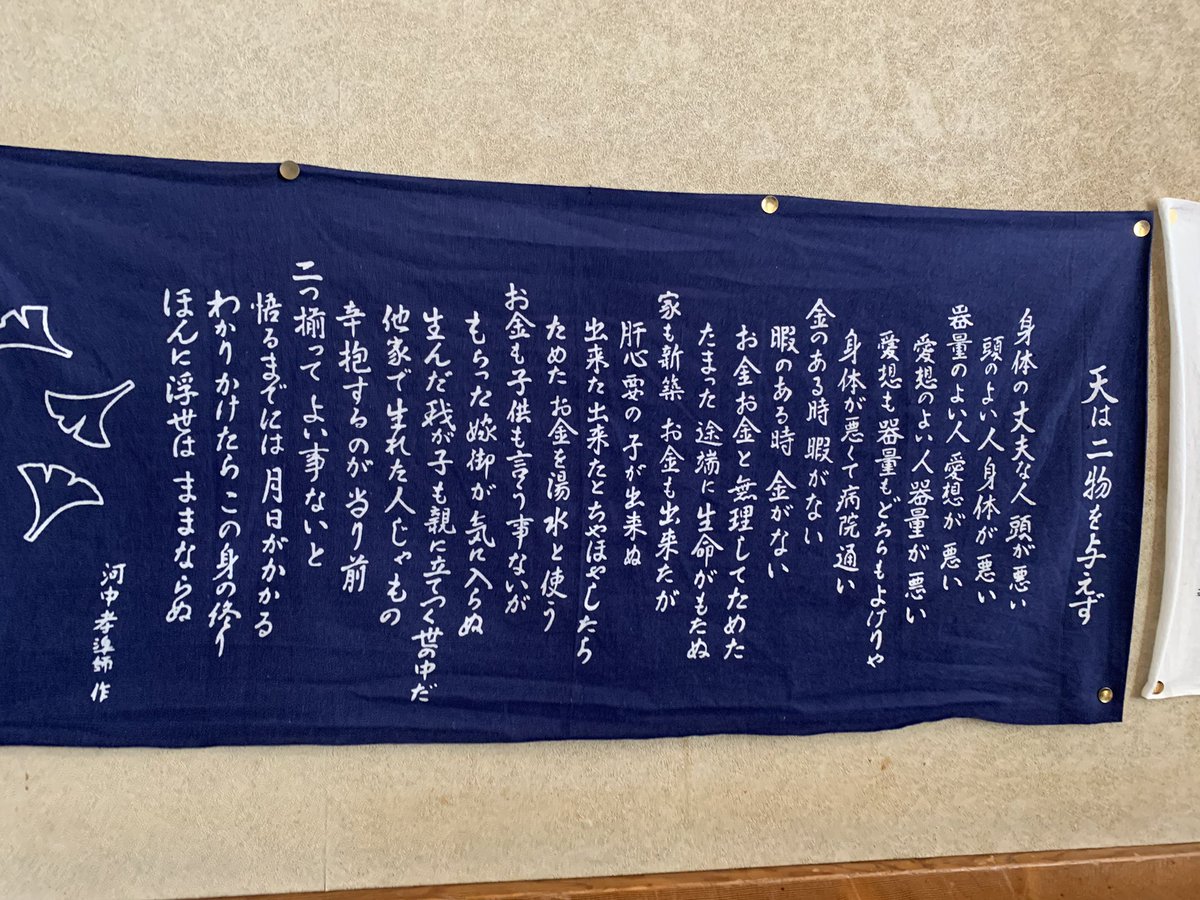 天は二物を与えず
身体の丈夫な人 頭が悪い
頭のよい人 身体が悪い
器量のよい人 愛想が悪い
愛想のよい人 器量が悪い
愛想も器量もどちらもよけりゃ
身体が悪くて病院通い
金のある時 暇がない
暇のある時 金がない
お金お金と無理してためた
たまった途端に生命がもたぬ
家も新築 お金も出来たが
肝心要の子が出来ぬ
出来た出来たとちやほやしたら
ためたお金を湯水と使う
お金も子供も言う事ないが
もらった嫁御が気に入らぬ
生んだ我が子も親に立てつく世の中だ
他家で生れた人じゃもの
辛抱するのが当り前
二つ揃ってよい事ないと
悟るまでには月日がかかる
わかりかけたらこの身の終り
ほんに浮世はままならぬ
河中孝道師 作